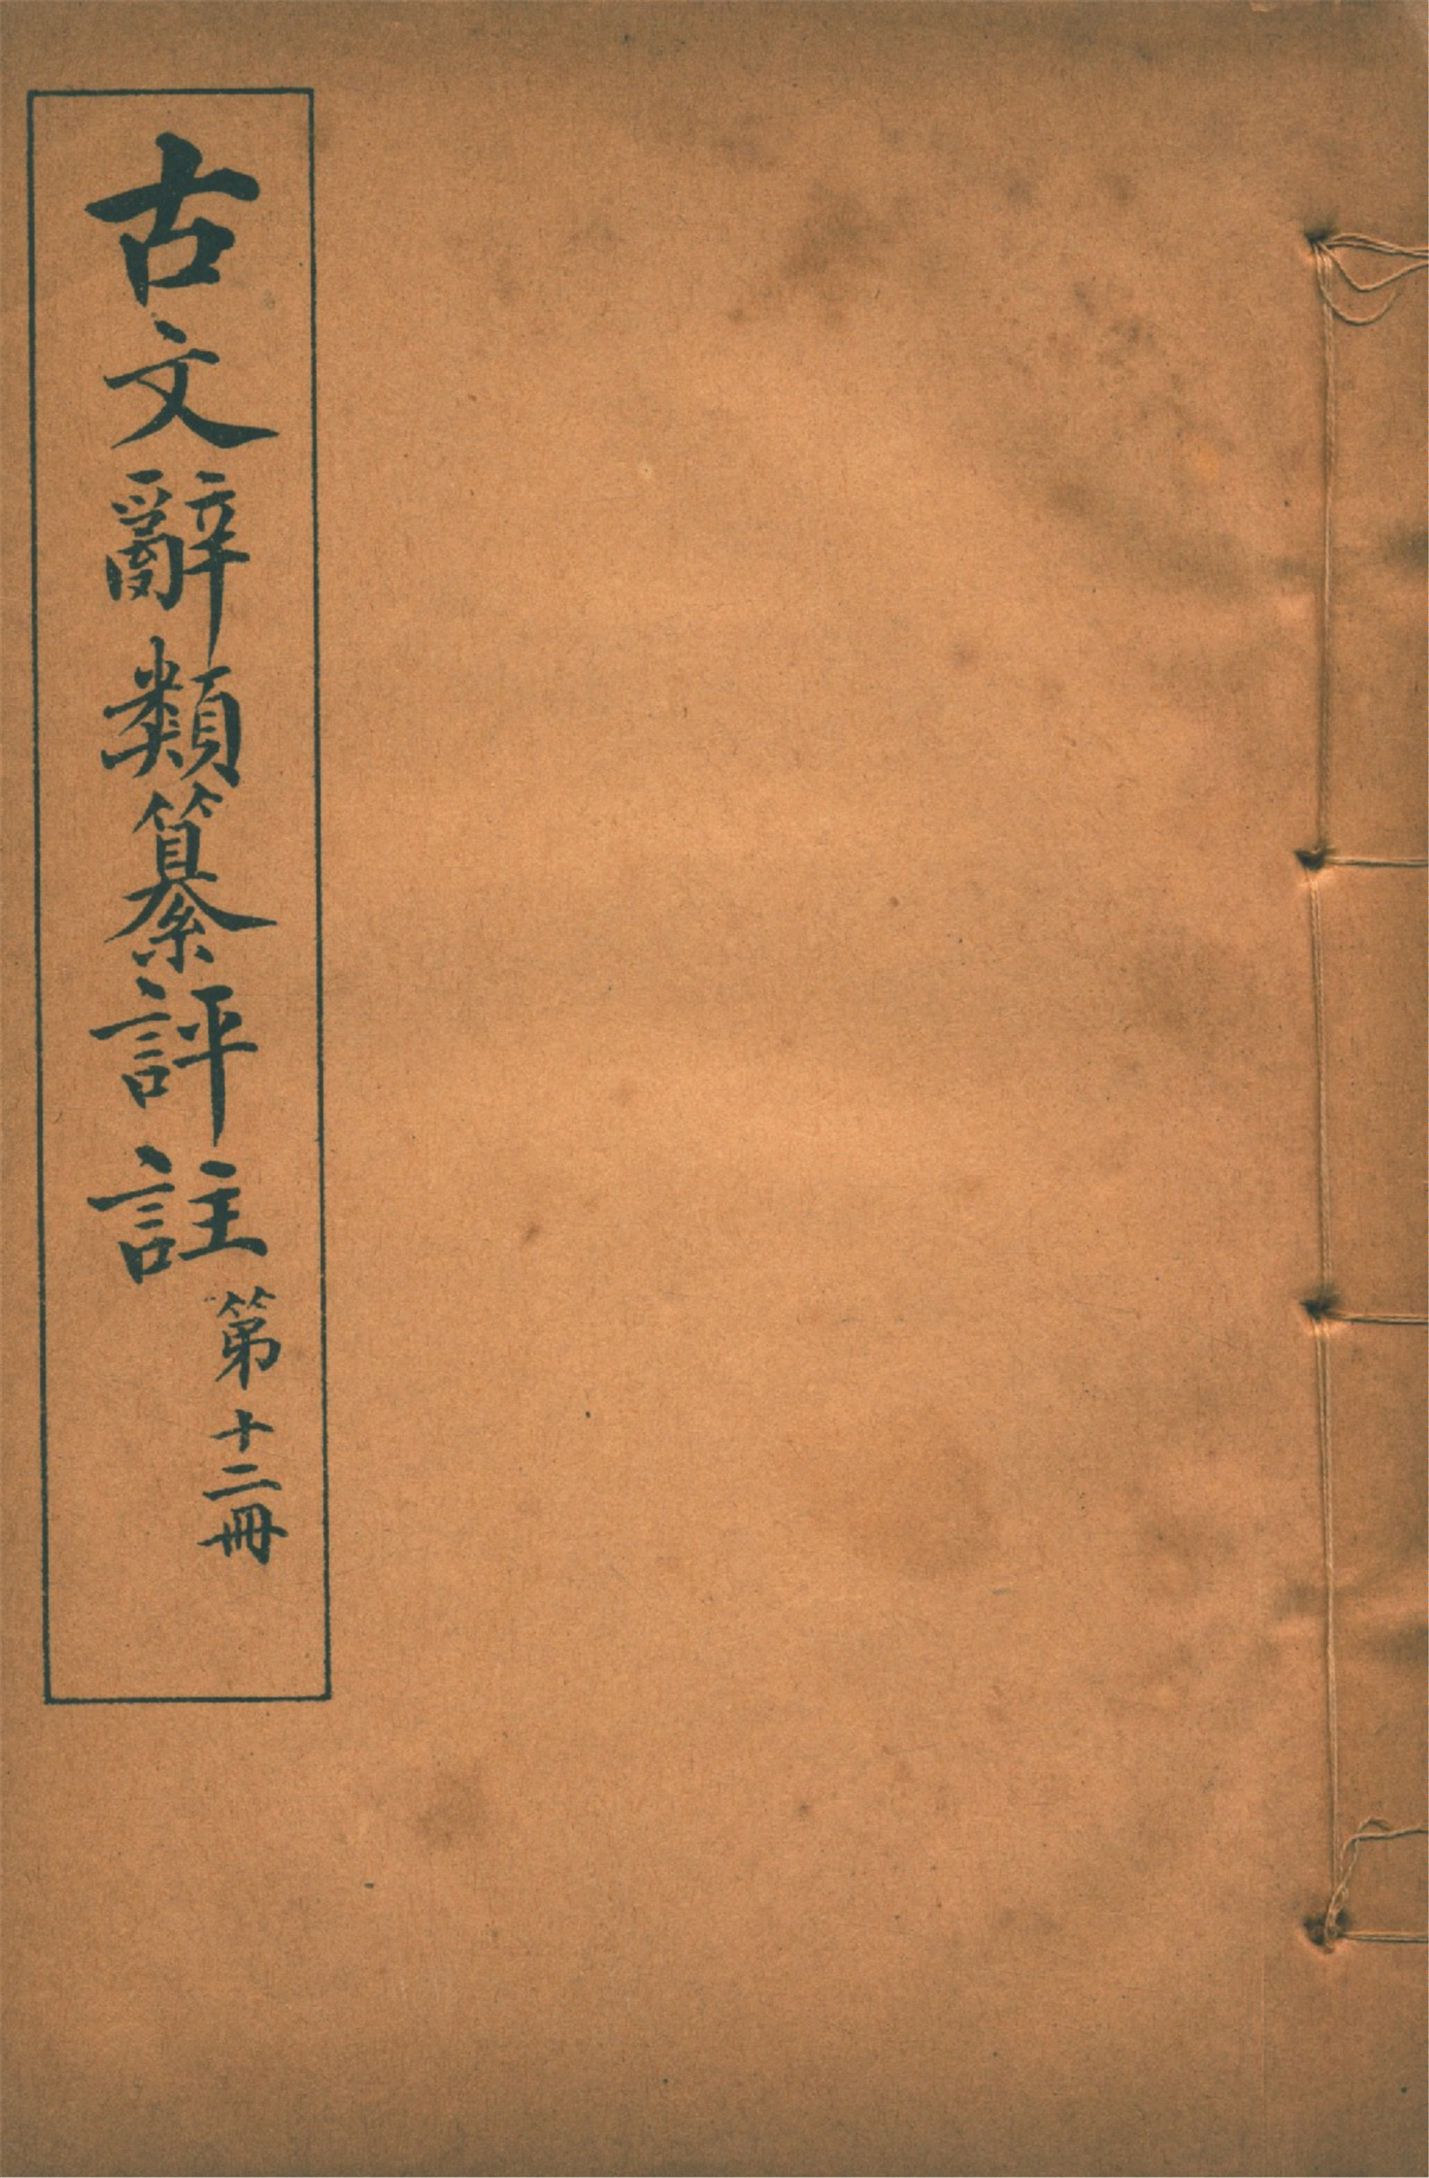 古文辭類纂評註
第十二冊